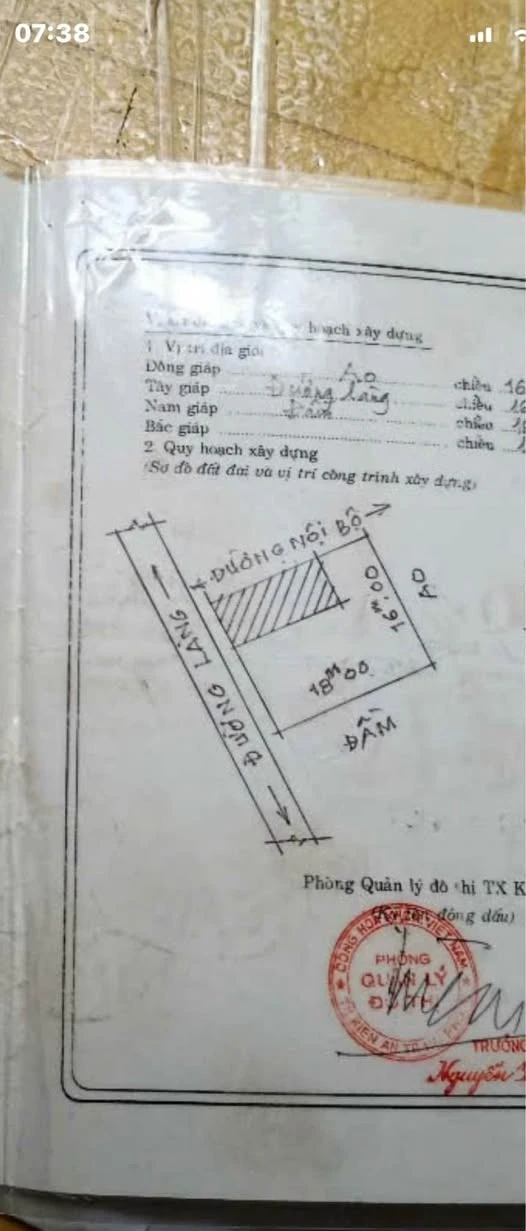 07:38
hoạch xây dựng
1 Vị trí địa giới
Đông giáp Ao chiều 16
Tây giáp Đường làng chiều
Nam giáp Đầm chiều
Bắc giáp chiều
2 Quy hoạch xây dựng
(Sơ đồ đất đai và vị trí công trình xây dựng)
ĐƯỜNG NỘI BỘ
16m,00
AO
ĐƯỜNG LÀNG
18m00
ĐẦM
Phòng Quản lý đô thị TX K
(Ký tên đóng dấu)
CỘNG HÒA VIỆT NAM
PHÒNG
QUẢN LÝ
ĐÔ THỊ
KIẾN AN
TRƯỞNG
Nguyễn